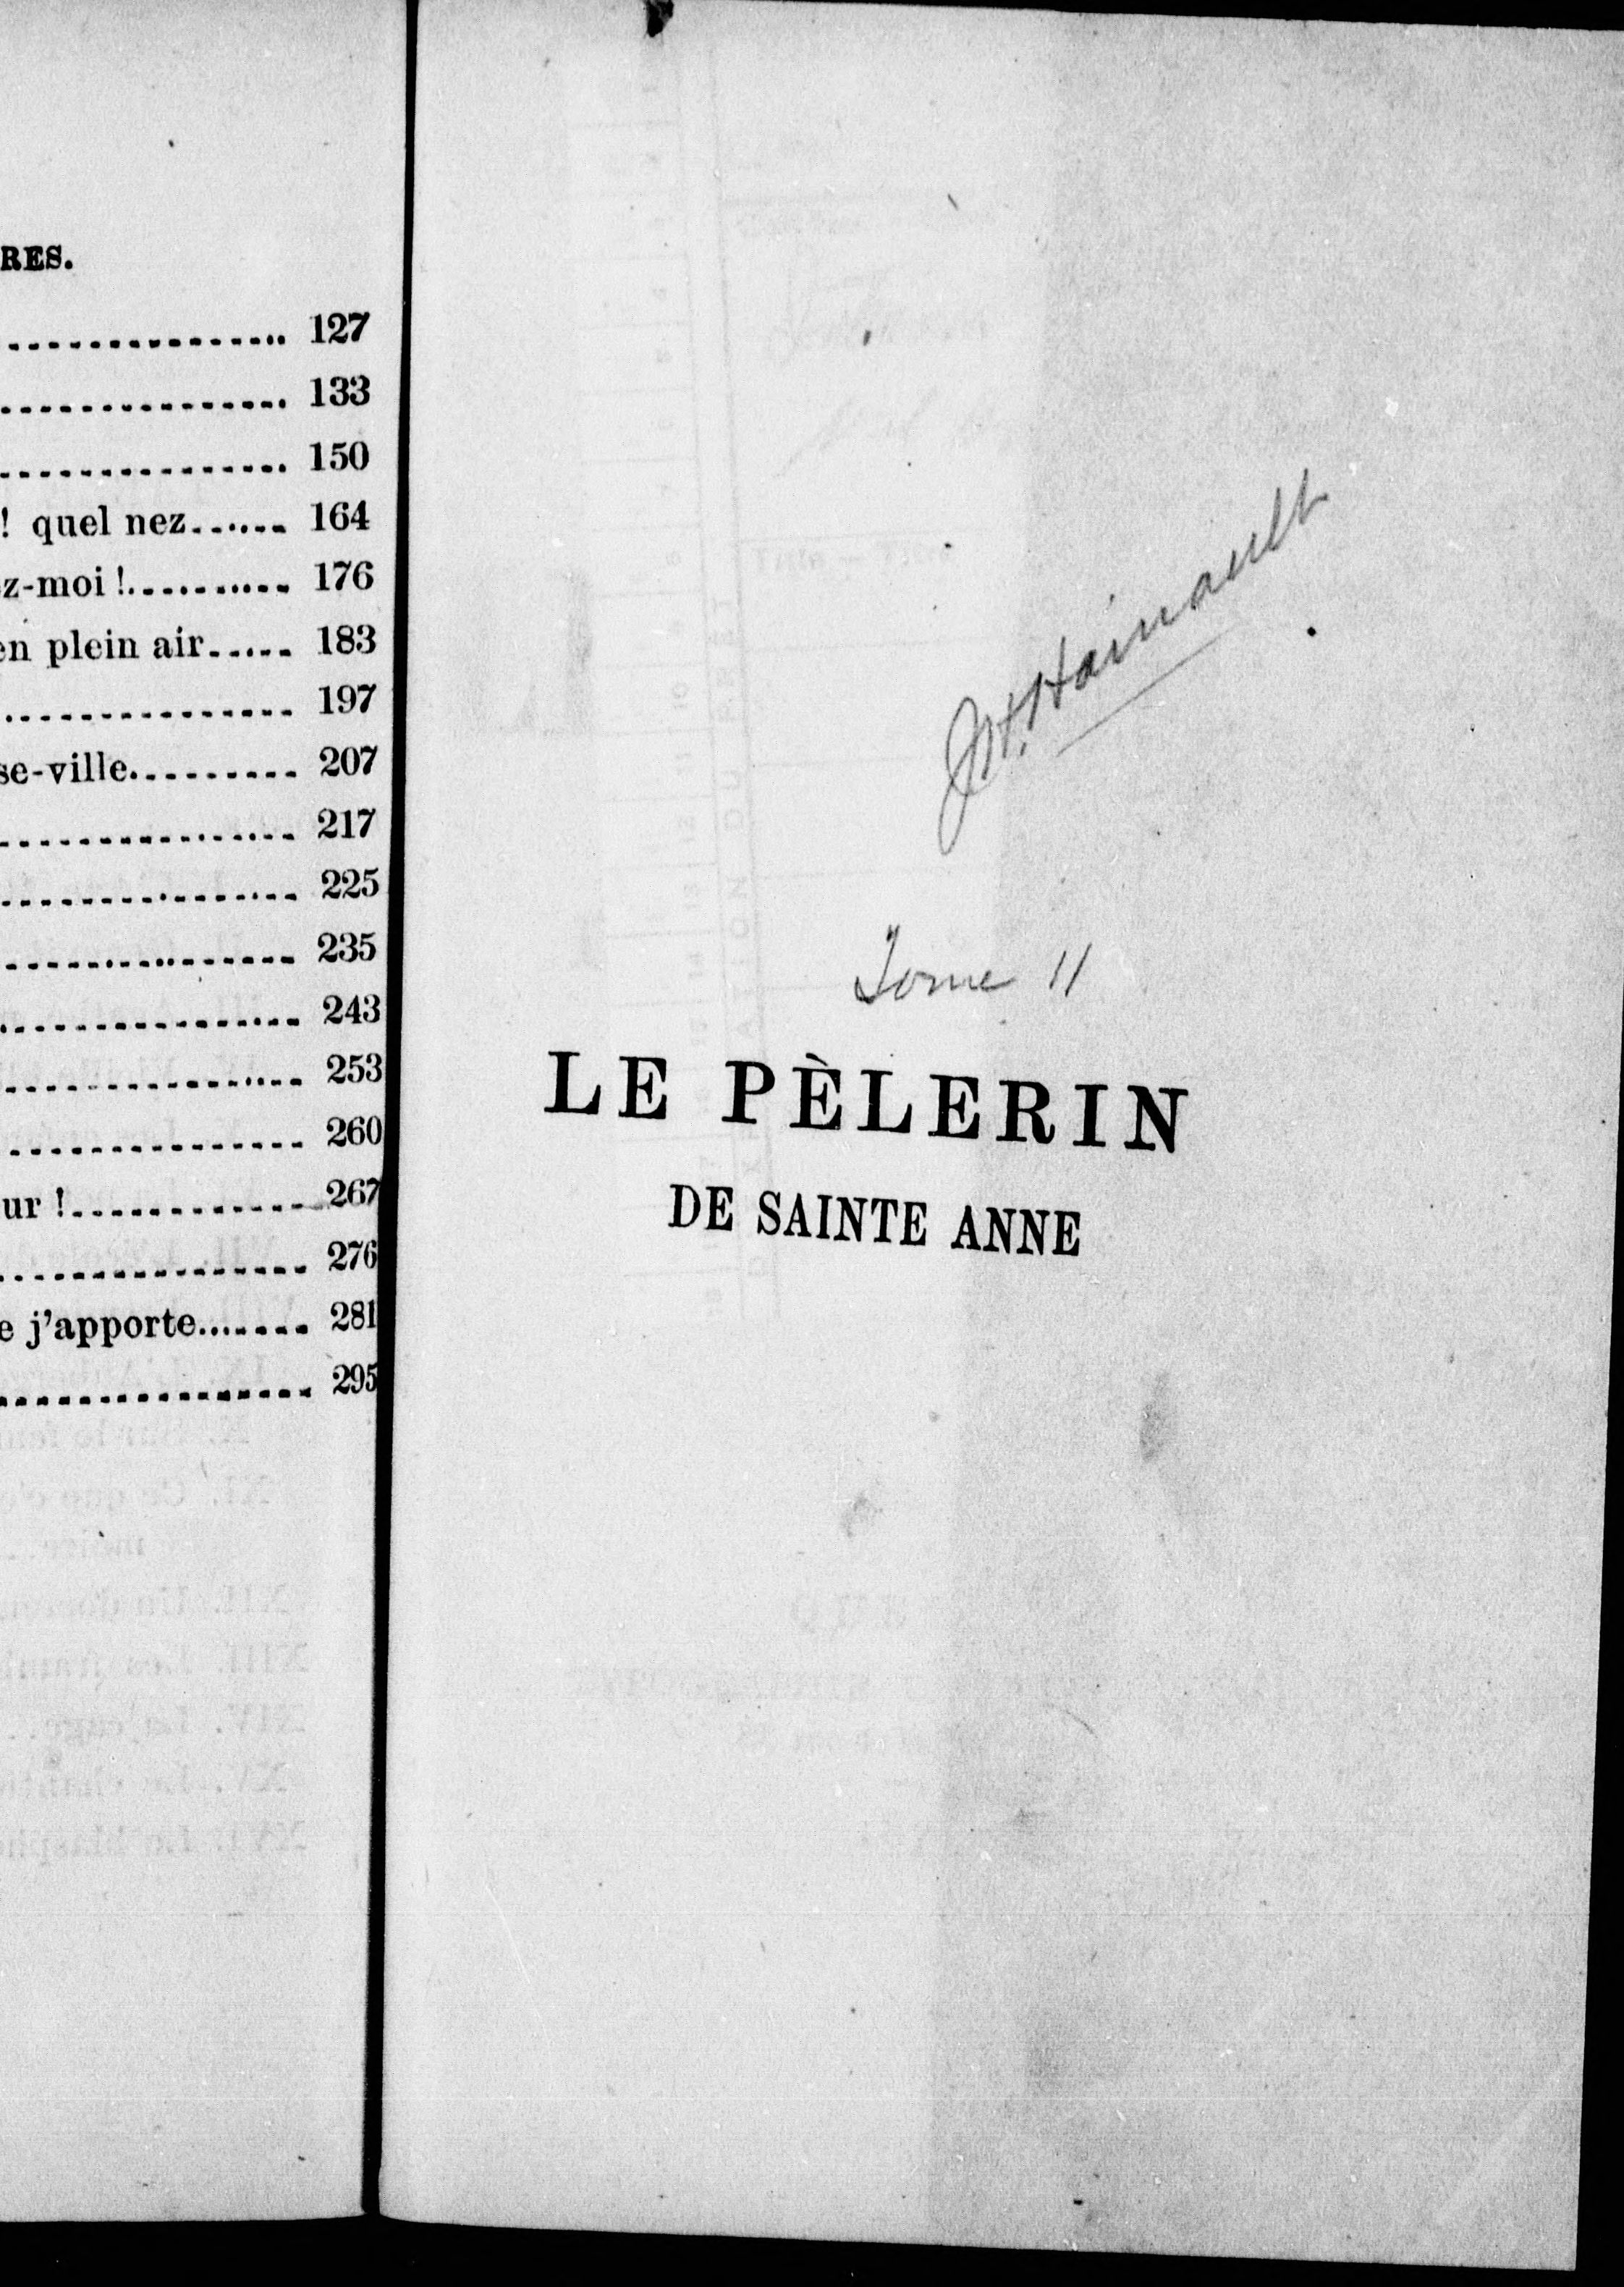 RES.
................ 127
................ 133
................ 150
! quel nez...... 164
z-moi !.......... 176
en plein air..... 183
................ 197
se-ville......... 207
................ 217
................ 225
................ 235
................ 243
................ 253
................ 260
ur !............. 267
................ 276
e j'apporte....... 281
................ 295
Hainault
Tome II
LE PÈLERIN
DE SAINTE ANNE